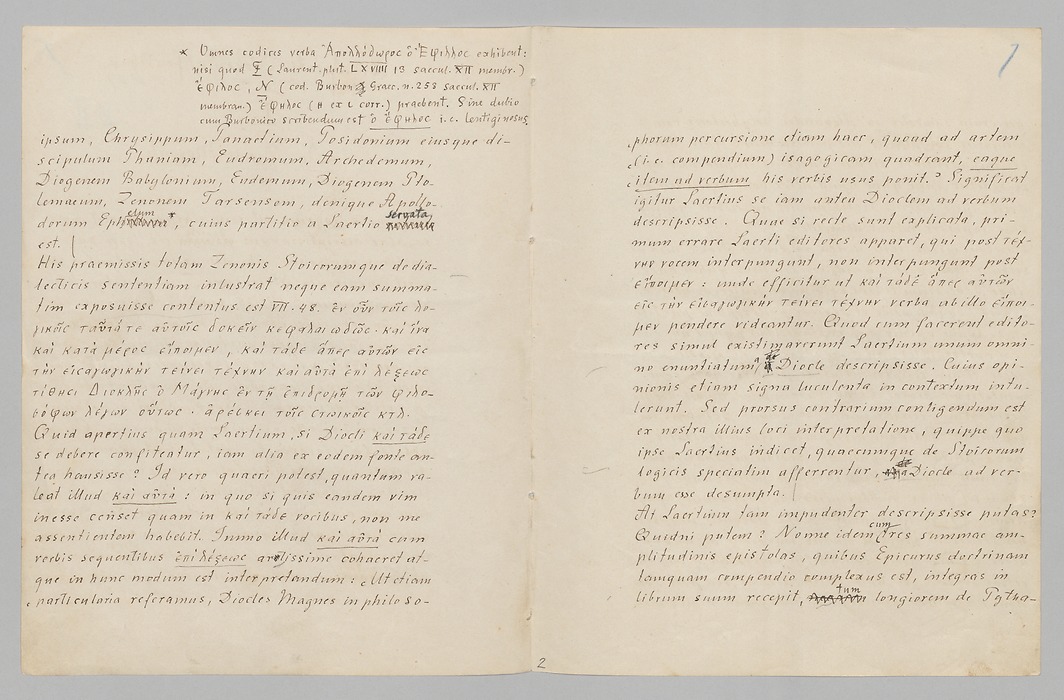 * Omnes codices verba Ἀπολλόδωρος ὁ Ἔφιλλος exhibent:
nisi quod F (Laurent. plut. LXVIIII 13 saecul. XII membr.)
ἔφιλος, N (cod. Burbon. Graec. n. 253 saecul. XII
membran.) ἔφηλος (η ex ι corr.) praebent. Sine dubio
cum Burbonico scribendum est ὁ ἔφηλος i.e. lentiginosus.
ipsum, Chrysippum, Posidonium eiusque di-
scipulum Phaniam, Eudromum, Archedemum,
Diogenem Babylonium, Eudemum, Diogenem Pto-
lemaeum, Zenonem Tarsensem, denique Apollo-
dorum Ephelum*, cuius partitio a Laertio servata
est.
His praemissis totam Zenonis Stoicorumque de dia-
lecticis sententiam inlustrat neque eam summa-
tim exposuisse contentus est VII. 48. ἐν οὖν τοῖς λο-
γικοῖς ταῦτά τε αὐτοῖς δοκεῖν κεφαλαιωδῶς. καὶ ἵνα
καὶ κατὰ μέρος εἴποιμεν, καὶ τάδε ἅπερ αὐτῶν εἰς
τὴν εἰσαγωγικὴν τείνει τέχνην καὶ αὐτὰ ἐπὶ λέξεως
τίθησι Διοκλῆς ὁ Μάγνης ἐν τῇ ἐπιδρομῇ τῶν φιλο-
σόφων λέγων οὕτως. ἀρέσκει τοῖς Στωικοῖς κτλ.
Quid apertius quam Laertium, si Diocli καὶ τάδε
se debere confiteatur, iam alia ex eodem fonte an-
tea hausisse? Id vero quaeri potest, quantum va-
leat illud καὶ αὐτά: in quo si quis eandem vim
inesse censet quam in καὶ τάδε vocibus, non me
assentientem habebit. Immo illud καὶ αὐτὰ cum
verbis sequentibus ἐπὶ λέξεως artissime cohaeret at-
que in hunc modum est interpretandum: „Ut etiam
„particularia referamus, Diocles Magnes in philoso-
2
„phorum percursione etiam haec, quoad ad artem
„(i.e. compendium) isagogicam quadrant, eaque
„item ad verbum his verbis usus ponit.“ Significat
igitur Laertius se iam antea Dioclem ad verbum
descripsisse. Quae si recte sunt explicata, pri-
mum errare Laerti editores apparet, qui post τέχ-
νην vocem interpungunt, non interpungunt post
εἴποιμεν: unde efficitur ut καὶ τάδε ἅπερ αὐτῶν
εἰς τὴν εἰσαγωγικὴν τείνει τέχνην verba ab illo εἴποι-
μεν pendere videantur. Quod cum facerent edito-
res simul existimaverunt Laertium unum omni-
no enuntiatum de Diocle descripsisse. Cuius opi-
nionis etiam signa luculenta in contextum intu-
lerunt. Sed prorsus contrarium contigendum est
ex nostra illius loci interpretatione, quippe quo
ipse Laertius indicet, quaecumque de Stoicorum
logicis speciatim afferrentur, de Diocle ad ver-
bum esse desumpta.
At Laertium tam impudenter descripsisse putas?
Quidni putem? Nonne idem cum tres summae am-
plitudinis epistolas, quibus Epicurus doctrinam
tamquam compendio complexus est, integras in
librum suum recepit, tum longiorem de Pytha-